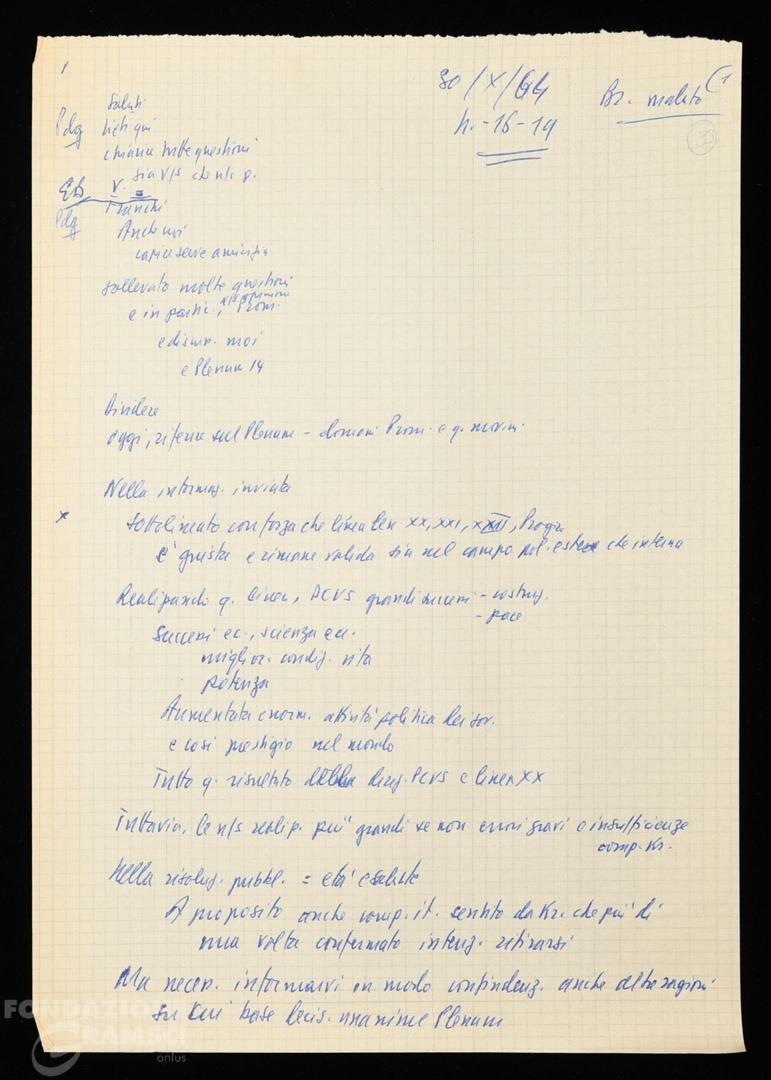 30/X/64
h. - 16-19
Br. malato
(1
30
Pdg
Saluti
lieti qui
chiarire tutte questioni
sia v/s che n/s p.
Eb
V.
Franchi
Pdg
Anche noi
amicizia
sollevato molte questioni
e in partic., Prom.
e discus. noi
e Plenum 14
Dividere
oggi, riferire sul Plenum - domani Prom. e q. movim.
Nella informaz. inviata
x
Sottolineato con forza che linea len XX, XXI, XXII, Progr.
è giusta e rimane valida sia nel campo pol. estera che interna
Realizzando q. linea, PCUS grandi successi - costruz.
- pace
Successi ec., scienza ecc.
miglior. condiz. vita
potenza
Aumentata enorm. attività politica dei sov.
e così prestigio nel mondo
Tutto q. risultato della direz. PCUS e linea XX
Tuttavia, le n/s realizz. più grandi se non errori gravi e insufficienze
comp. Kr.
Nella risoluz. pubbl. = età e salute
A proposito anche comp. it. sentito da Kr. che più di
una volta confermato intenz. ritirarsi
Ma necess. informarvi in modo confidenz. anche altre ragioni
su cui base decis. unanime Plenum
FONDAZIONE
GRAMSCI
onlus